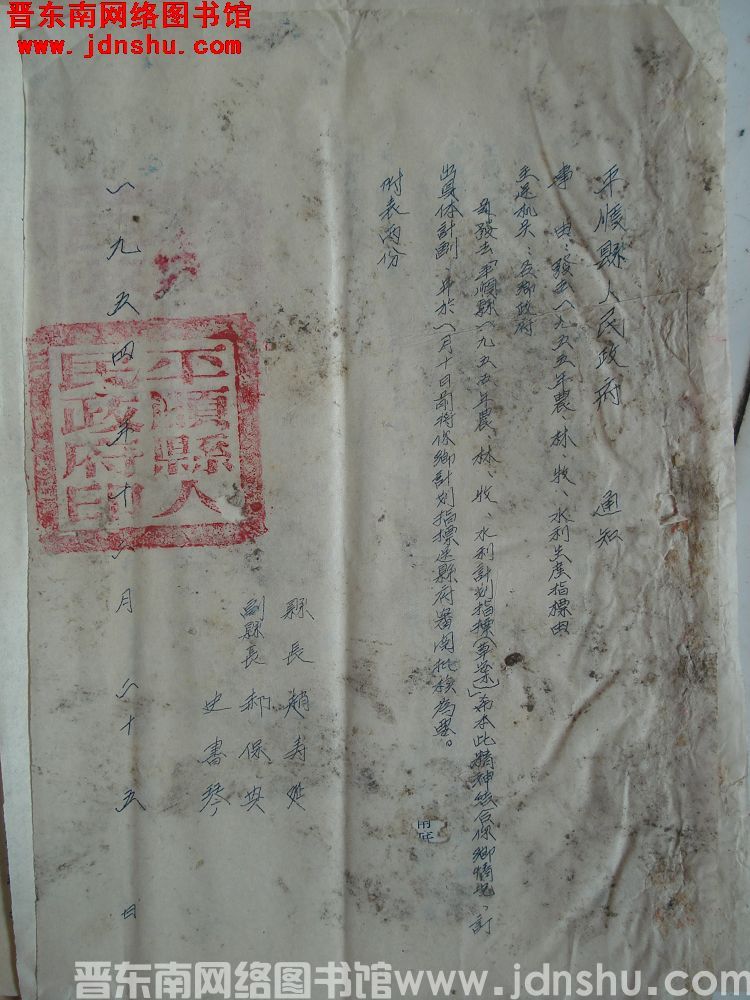 晋东南网络图书馆
www.jdnshu.com
平順縣人民政府 通知
事由：發去一九五五年農、林、牧、水利生産指標由
主送机关：各鄉政府
茲發去「平順縣一九五五年農、林、牧、水利計划指標（草案）」希本此精神结合你鄉情况，訂
出具体計劃，并於一月十日前将你鄉計划指標送縣府審閱批核為要。
附表两份
縣長 趙
副縣長 郝保典
史書琴
一九五四年十二月二十五日
平順縣人民政府印
晋东南网络图书馆www.jdnshu.com